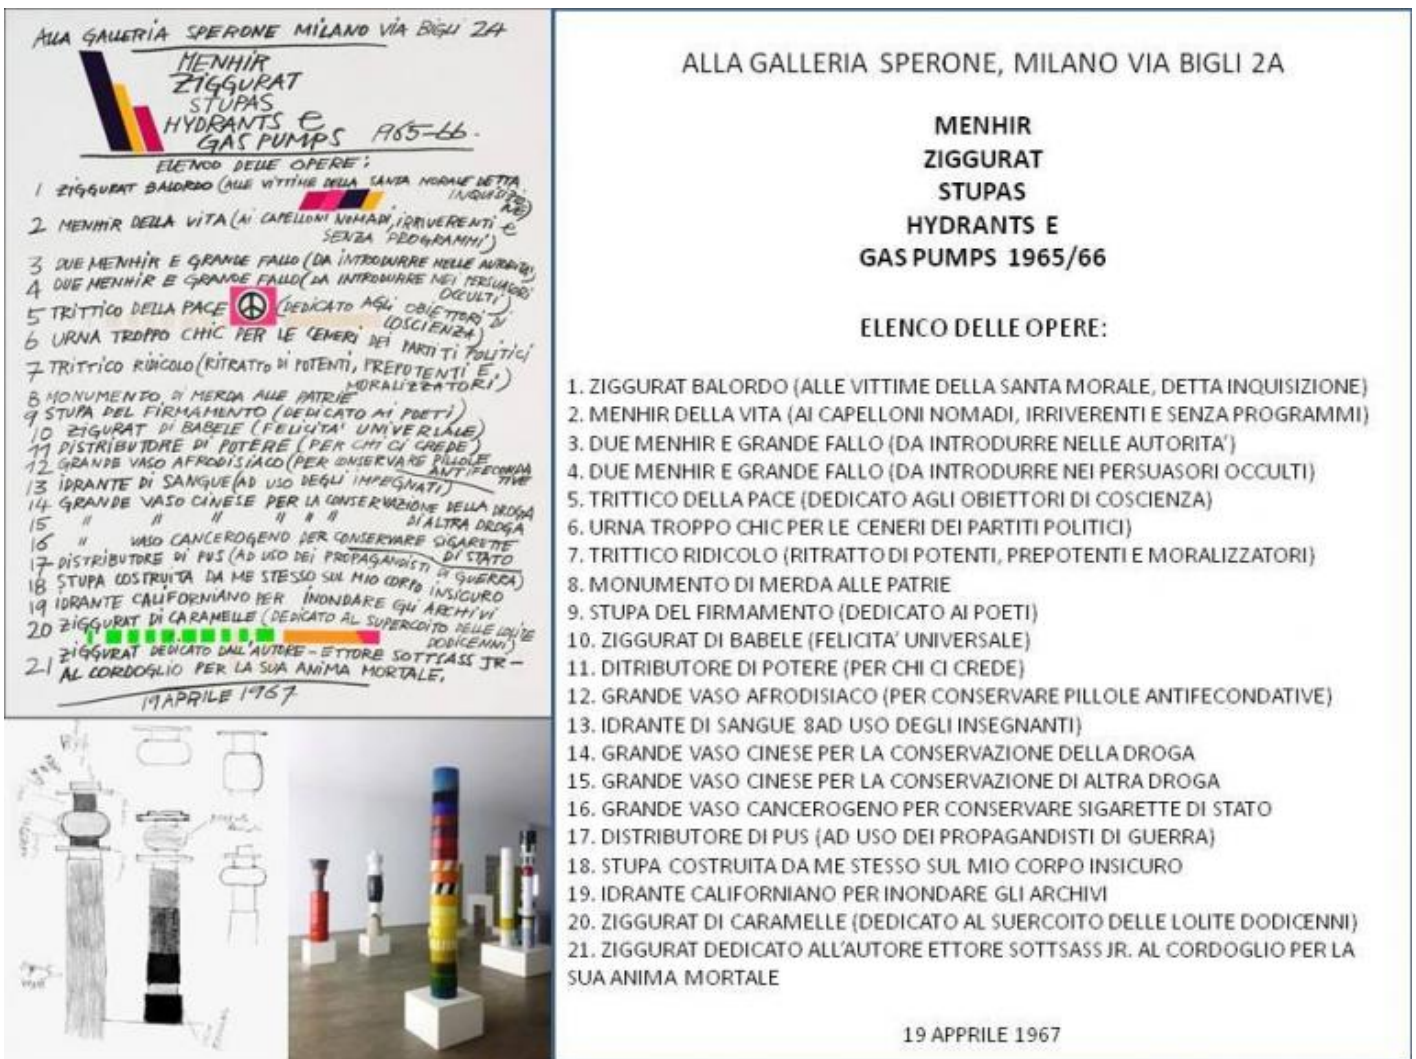 ALLA GALLERIA SPERONE MILANO VIA BIGLI 2A
MENHIR
ZIGGURAT
STUPAS
HYDRANTS e
GAS PUMPS 1965-66.
ELENCO DELLE OPERE:
1 ZIGGURAT BALORDO (ALLE VITTIME DELLA SANTA MORALE DETTA
INQUISIZIO
NE)
2 MENHIR DELLA VITA (AI CAPELLONI NOMADI, IRRIVERENTI e
SENZA PROGRAMMI)
3 DUE MENHIR E GRANDE FALLO (DA INTRODURRE NELLE AUTORITA')
4 DUE MENHIR E GRANDE FALLO (DA INTRODURRE NEI PERSUASORI
OCCULTI)
5 TRITTICO DELLA PACE (DEDICATO AGLI OBIETTORI DI
COSCIENZA)
6 URNA TROPPO CHIC PER LE CENERI DEI PARTITI POLITICI
7 TRITTICO RIDICOLO (RITRATTO DI POTENTI, PREPOTENTI E,
MORALIZZATORI)
8 MONUMENTO DI MERDA ALLE PATRIE
9 STUPA DEL FIRMAMENTO (DEDICATO AI POETI)
10 ZIGURAT DI BABELE (FELICITA' UNIVERSALE)
11 DISTRIBUTORE DI POTERE (PER CHI CI CREDE)
12 GRANDE VASO AFRODISIACO (PER CONSERVARE PILLOLE
ANTIFECONDA
TIVE)
13 IDRANTE DI SANGUE (AD USO DEGLI IMPEGNATI)
14 GRANDE VASO CINESE PER LA CONSERVAZIONE DELLA DROGA
15 " " " " " " DI ALTRA DROGA
16 " VASO CANCEROGENO PER CONSERVARE SIGARETTE
DI STATO
17 DISTRIBUTORE DI PUS (AD USO DEI PROPAGANDISTI DI GUERRA)
18 STUPA COSTRUITA DA ME STESSO SUL MIO CORPO INSICURO
19 IDRANTE CALIFORNIANO PER INONDARE GLI ARCHIVI
20 ZIGGURAT DI CARAMELLE (DEDICATO AL SUPERCOITO DELLE LOLITE
DODICENNI)
21 ZIGGURAT DEDICATO DALL'AUTORE - ETTORE SOTTSASS JR -
AL CORDOGLIO PER LA SUA ANIMA MORTALE.
19 APRILE 1967
ALLA GALLERIA SPERONE, MILANO VIA BIGLI 2A
MENHIR
ZIGGURAT
STUPAS
HYDRANTS E
GAS PUMPS 1965/66
ELENCO DELLE OPERE:
1. ZIGGURAT BALORDO (ALLE VITTIME DELLA SANTA MORALE, DETTA INQUISIZIONE)
2. MENHIR DELLA VITA (AI CAPELLONI NOMADI, IRRIVERENTI E SENZA PROGRAMMI)
3. DUE MENHIR E GRANDE FALLO (DA INTRODURRE NELLE AUTORITA')
4. DUE MENHIR E GRANDE FALLO (DA INTRODURRE NEI PERSUASORI OCCULTI)
5. TRITTICO DELLA PACE (DEDICATO AGLI OBIETTORI DI COSCIENZA)
6. URNA TROPPO CHIC PER LE CENERI DEI PARTITI POLITICI)
7. TRITTICO RIDICOLO (RITRATTO DI POTENTI, PREPOTENTI E MORALIZZATORI)
8. MONUMENTO DI MERDA ALLE PATRIE
9. STUPA DEL FIRMAMENTO (DEDICATO AI POETI)
10. ZIGGURAT DI BABELE (FELICITA' UNIVERSALE)
11. DITRIBUTORE DI POTERE (PER CHI CI CREDE)
12. GRANDE VASO AFRODISIACO (PER CONSERVARE PILLOLE ANTIFECONDATIVE)
13. IDRANTE DI SANGUE 8AD USO DEGLI INSEGNANTI)
14. GRANDE VASO CINESE PER LA CONSERVAZIONE DELLA DROGA
15. GRANDE VASO CINESE PER LA CONSERVAZIONE DI ALTRA DROGA
16. GRANDE VASO CANCEROGENO PER CONSERVARE SIGARETTE DI STATO
17. DISTRIBUTORE DI PUS (AD USO DEI PROPAGANDISTI DI GUERRA)
18. STUPA COSTRUITA DA ME STESSO SUL MIO CORPO INSICURO
19. IDRANTE CALIFORNIANO PER INONDARE GLI ARCHIVI
20. ZIGGURAT DI CARAMELLE (DEDICATO AL SUERCOITO DELLE LOLITE DODICENNI)
21. ZIGGURAT DEDICATO ALL'AUTORE ETTORE SOTTSASS JR. AL CORDOGLIO PER LA
SUA ANIMA MORTALE
19 APPRILE 1967